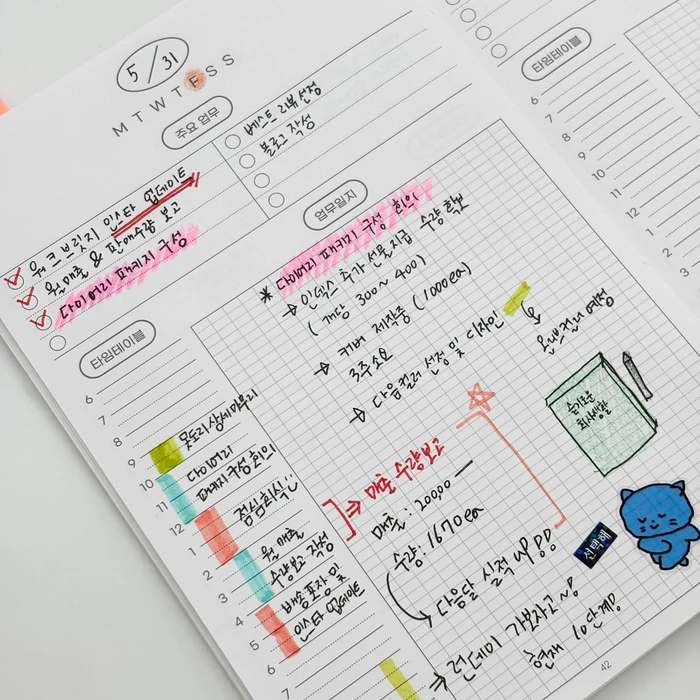 5/31
M T W T F S S
주요 업무
베스트 리뷰 선정
블로그 작성
워크브릿지 인스타 업데이트
월매출 & 판매수량 보고
다이어리 패키지 구성
타임테이블
6
7
8
9
10
11
12
1
2
3
4
5
6
7
못도리 상세 마무리
다이어리
패키지 구성 회의
점심회식
월 매출
수량보고 작성
배송 포장 및
인스타 업데이트
업무일지
* 다이어리 패키지 구성 회의
→ 인덱스 추가 선물지급 수량 확보
(개당 300~400)
→ 커버 제작중 (1000ea)
3주소요
→ 다음컬러 선정 및 디자인
올리브컬러 예정
슬기로운
회사생활
⇒ 매출 수량보고
매출: 20000 —
수량: 1670ea
다음달 실적 up!!
선택해
⇒ 런데이 가보자고~!
현재 10단계!
42
타임테이블
6
7
8
9
10
11
12
1
2